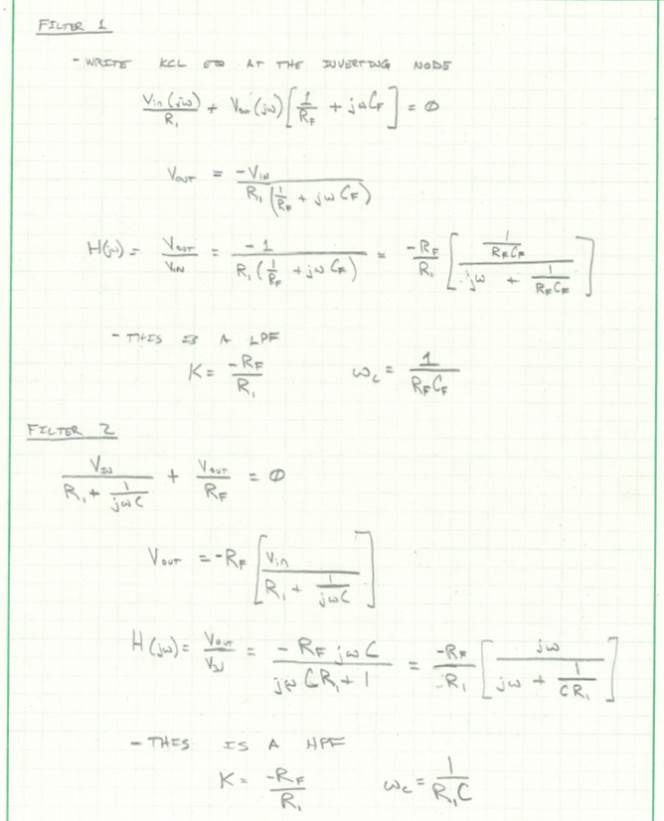 FILTER 1
- WRITE KCL EQ AT THE INVERTING NODE
Vin(jω)/R₁ + Vout(jω)[1/R_F + jωC_F] = 0
V_OUT = -V_IN / R₁(1/R_F + jωC_F)
H(jω) = V_OUT/V_IN = -1 / R₁(1/R_F + jωC_F) = -R_F/R₁ [ (1/R_FC_F) / (jω + 1/R_FC_F) ]
- THIS IS A LPF
K = -R_F/R₁   ω_c = 1/R_FC_F
FILTER 2
V_IN / (R₁ + 1/jωC) + V_out/R_F = 0
V_OUT = -R_F [ Vin / (R₁ + 1/jωC) ]
H(jω) = V_OUT/V_IN = -R_F jωC / (jωCR₁ + 1) = -R_F/R₁ [ jω / (jω + 1/CR₁) ]
- THIS IS A HPF
K = -R_F/R₁   ω_c = 1/R₁C